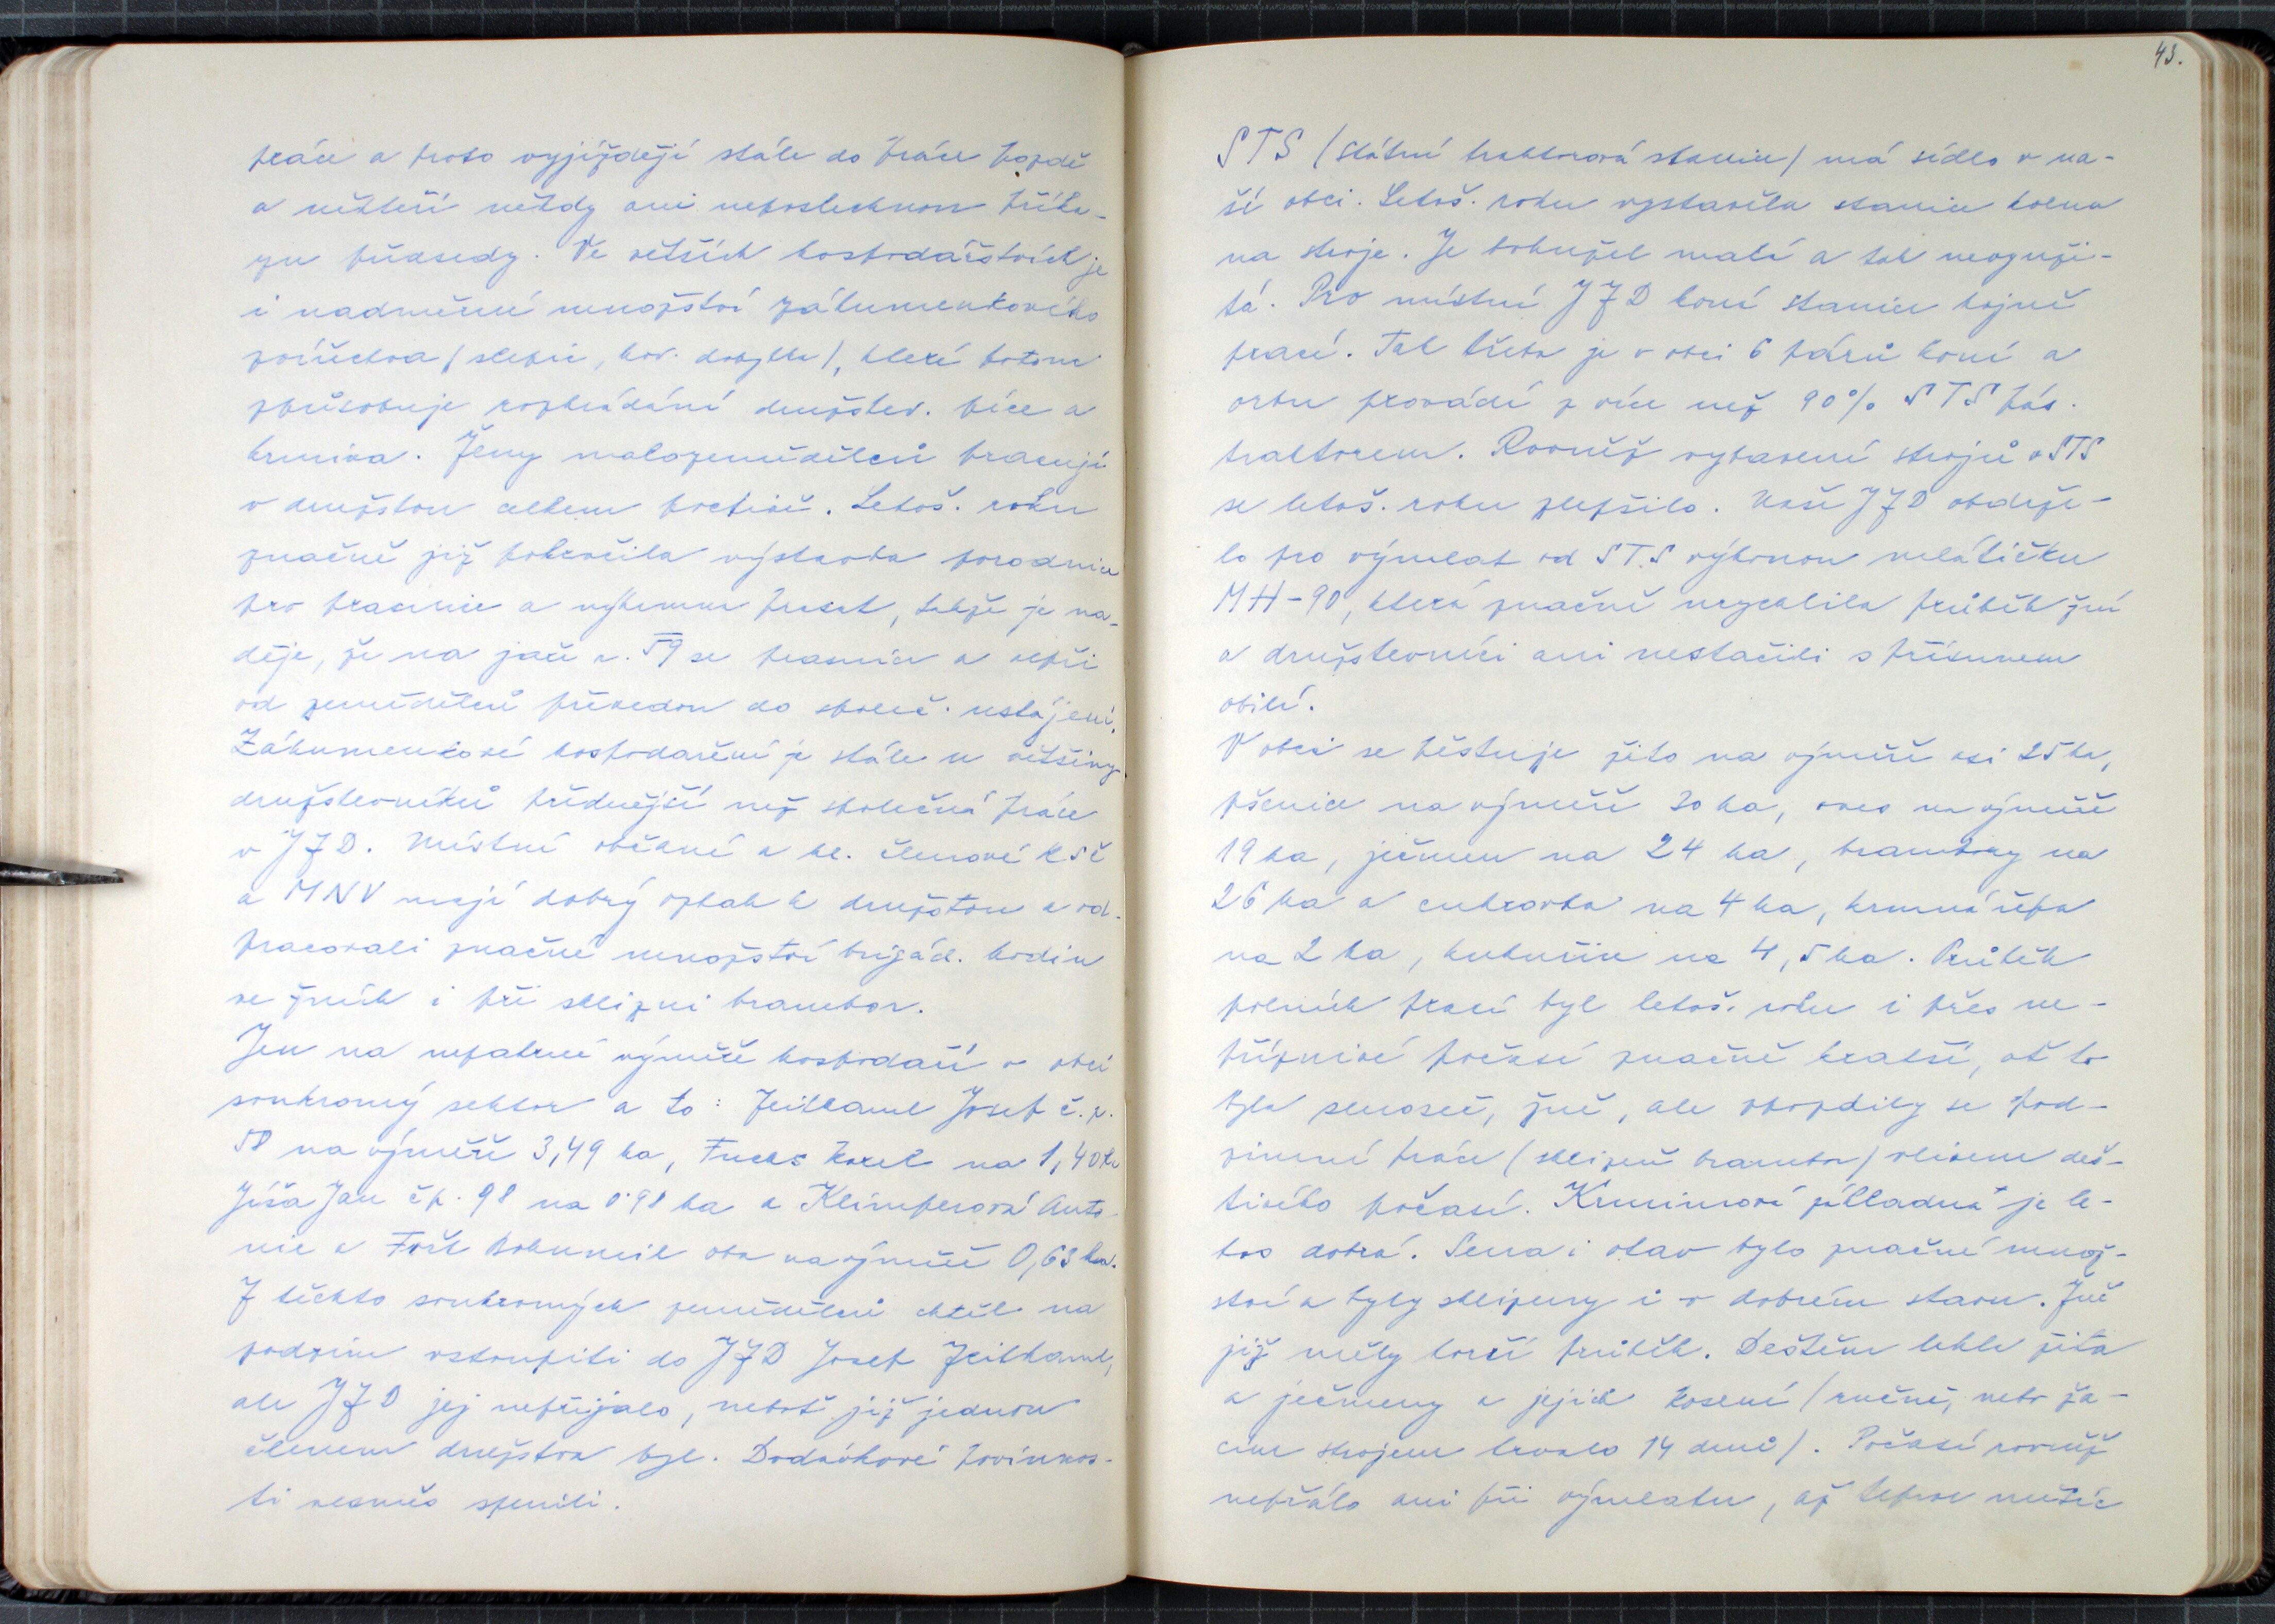 práce a proto vyjíždějí stále do práce pozdě
a někteří někdy ani neposlechnou příka-
zu předsedy. Ve větších hospodářstvích je
i nadměrné množství záhumenkového
zvířectva (slepic, hov. dobytka), které potom
způsobuje rozkrádání družstev. píce a
krmiva. Ženy malozemědělců pracují
v družstvu celkem poctivě. Letoš. roku
značně již pokročila výstavba porodnice
pro prasnice a výkrmna prasat, takže je na-
děje, že na jaře r. 59 se prasnice a vepři
od zemědělců převedou do společ. ustájení.
Záhumenkové hospodaření je stále u většiny
družstevníků přednější než společná práce
v JZD. Místní občané a hl. členové KSČ
a MNV mají dobrý vztah k družstvu a od-
pracovali značné množství brigád. hodin
ve žních i při sklizni brambor.
Jen na nepatrné výměře hospodaří v obci
soukromý sektor a to: Zeithaml Josef č. p.
58 na výměře 3,49 ha, Fuchs Karel na 1,40 ha
Jíša Jan čp. 98 na 0·98 ha a Klimperová Anto-
nie a Fořt Bohumil oba na výměře 0,63 ha.
Z těchto soukromých zemědělců chtěl na
podzim vstoupiti do JZD Josef Zeithaml,
ale JZD jej nepřijalo, neboť již jednou
členem družstva byl. Dodávkové povinnos-
ti vesměs splnili.
43.
STS (státní traktorová stanice) má sídlo v na-
ší obci. Letoš. roku vystavěla stanice kolnu
na stroje. Je bohužel malá a tak nevyuži-
tá. Pro místní JZD koná stanice hojně
prací. Tak třeba je v obci 6 párů koní a
orbu provádí z více než 90% STS pás.
traktorem. Rovněž vybavení strojů v STS
se letoš. roku zlepšilo. Naše JZD obdrže-
lo pro výmlat od STS výkonou mlátičku
MH-90, která značně urychlila průběh žní
a družstevníci ani nestačili s přísunem
obilí.
V obci se pěstuje žito na výměře asi 25 ha,
pšenice na výměře 30 ha, oves na výměře
19 ha, ječmen na 24 ha, brambory na
26 ha a cukrovka na 4 ha, krmná řepa
na 2 ha, kukuřice na 4,5 ha. Průběh
polních prací byl letoš. roku i přes ne-
příznivé počasí značně kratší, ať to
byla senoseč, žně, ale opozdily se pod-
zimní práce (sklizeň brambor) vlivem deš-
tivého počasí. Krmivová základna je le-
tos dobrá. Sena i otav bylo značné množ-
ství a byly sklizeny i v dobrém stavu. Žně
již měly horší průběh. Deštěm lehla žita
a ječmeny a jejich kosení (ručně, nebo ža-
cím strojem trvalo 14 dnů). Počasí rovněž
nepřálo ani při výmlatu, až teprve měsíc